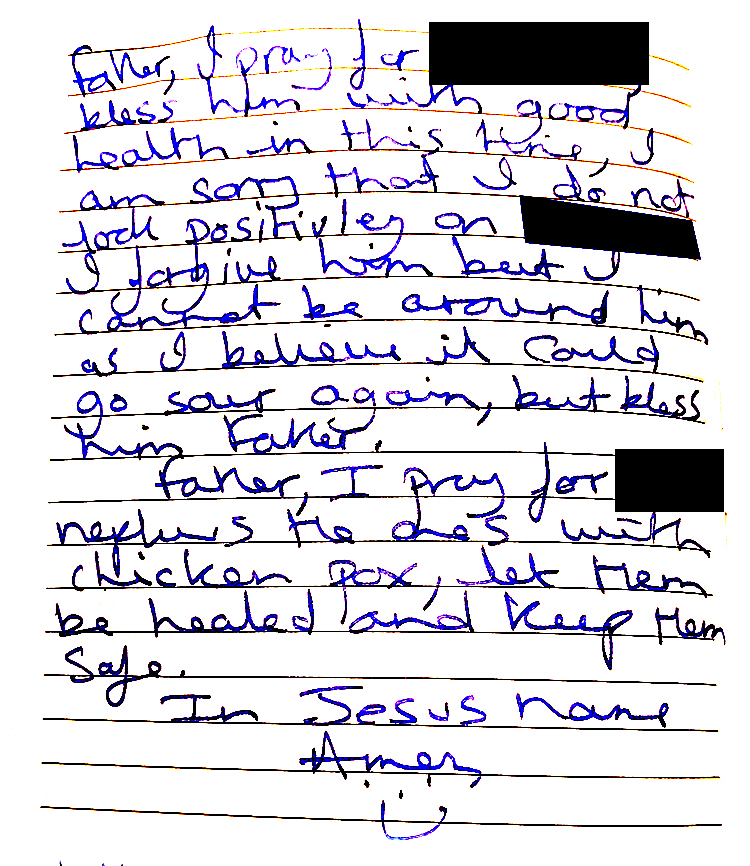 Father, I pray for
bless him with good
health in this time, I
am sorry that I do not
look positivley on
I forgive him but I
cannot be around him
as I believe it could
go sour again, but bless
him Father.
Father, I pray for
nephews the ones with
chicken pox, let them
be healed and keep them
safe.
In Jesus name
Amen